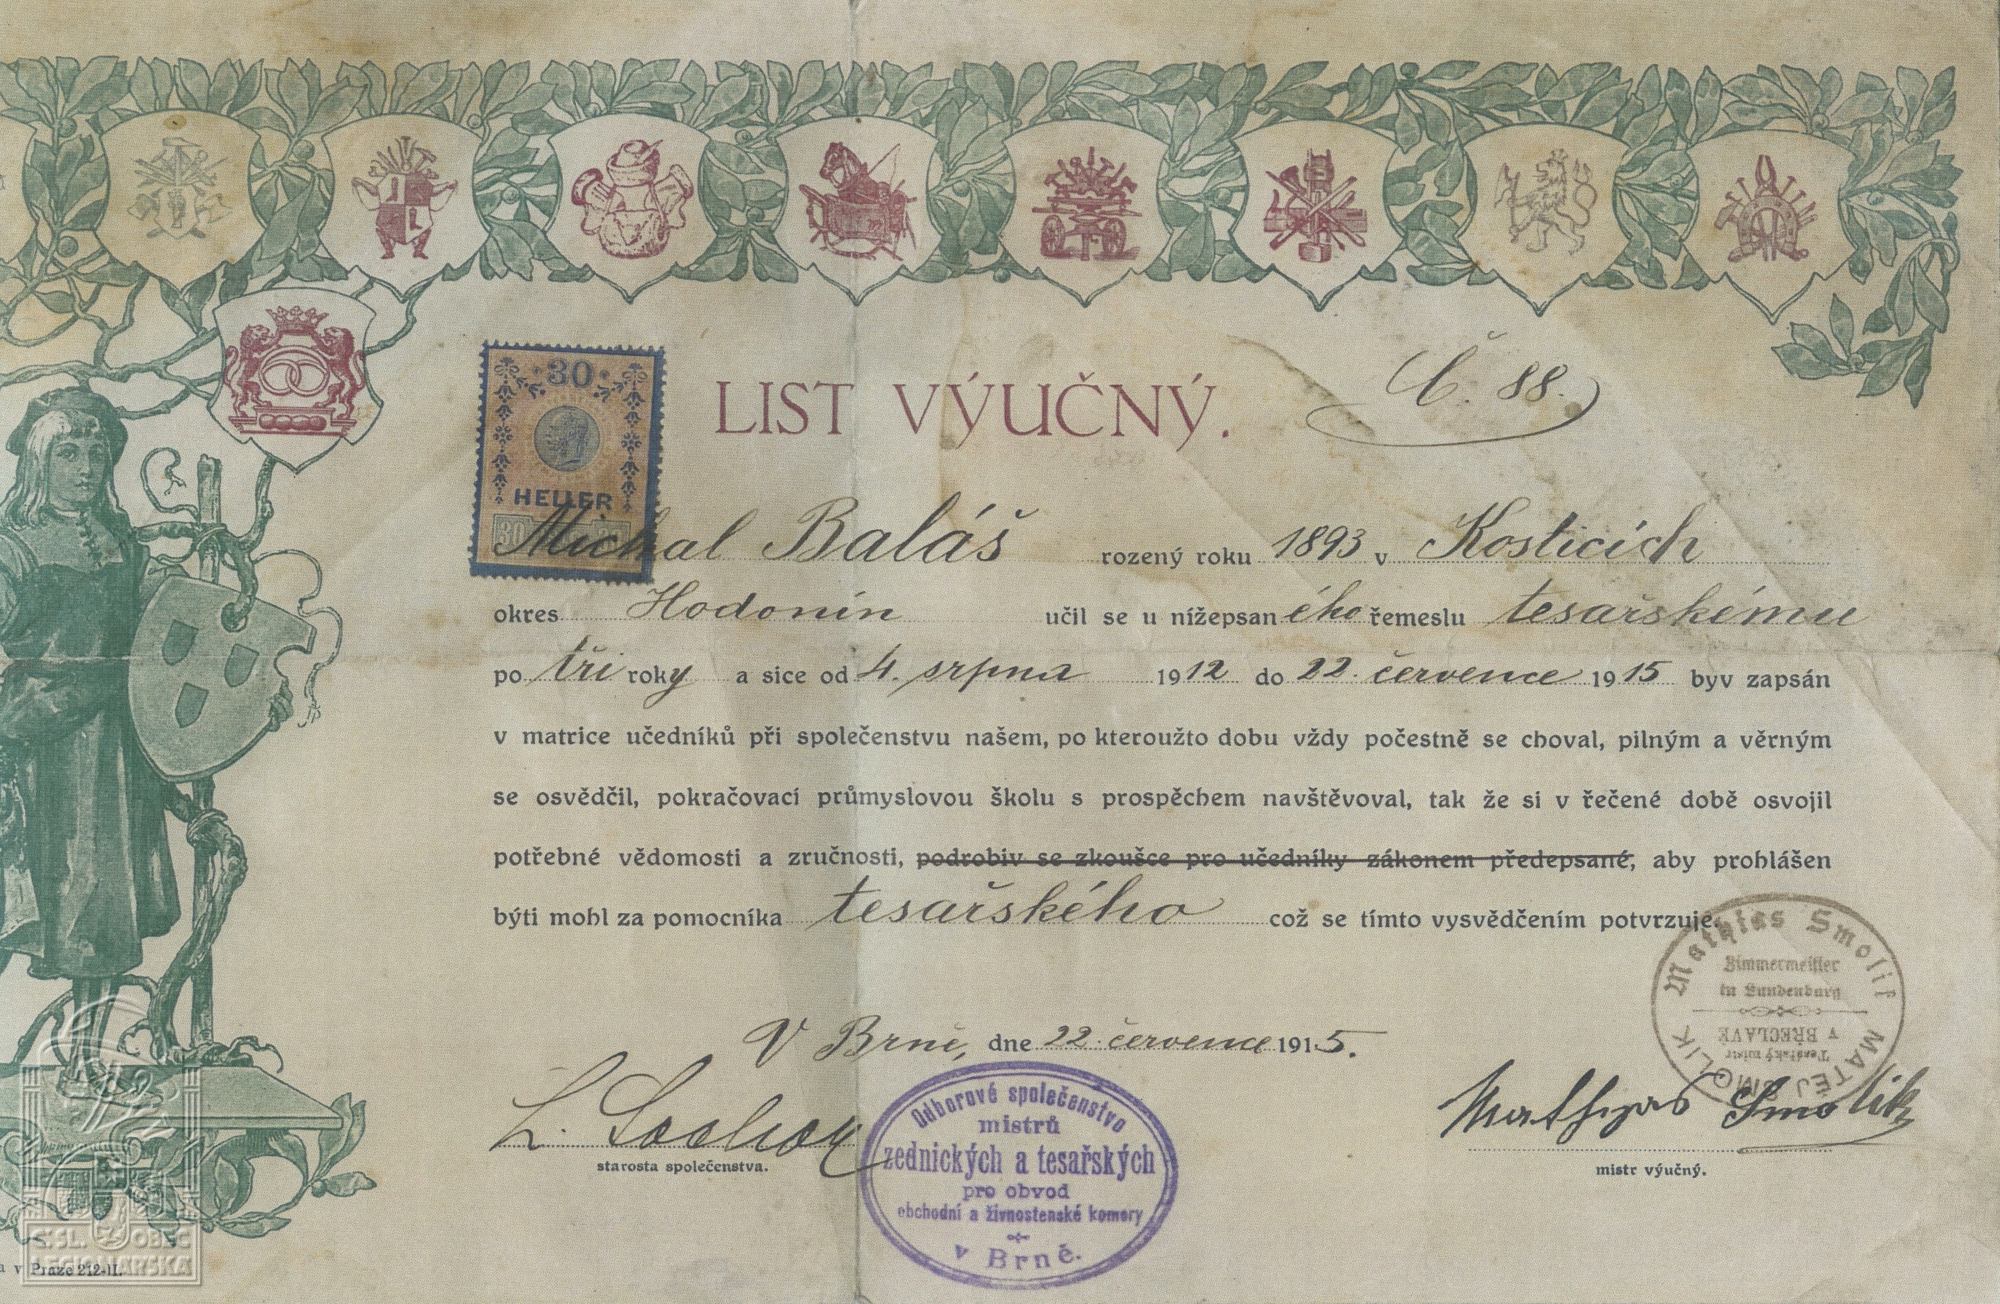 LIST VÝUČNÝ.
Č. 88.
30
HELLER
30
Michal Baláš rozený roku 1893 v Kosticích
okres Hodonín učil se u nížepsaného řemeslu tesařskému
po tři roky a sice od 4. srpna 1912 do 22. července 1915 byv zapsán
v matrice učedníků při společenstvu našem, po kteroužto dobu vždy počestně se choval, pilným a věrným
se osvědčil, pokračovací průmyslovou školu s prospěchem navštěvoval, tak že si v řečené době osvojil
potřebné vědomosti a zručnosti, podrobiv se zkoušce pro učedníky zákonem předepsané, aby prohlášen
býti mohl za pomocníka tesařského což se tímto vysvědčením potvrzuje.
Mathias Smolik
Zimmermeister
in Lundenburg
MATĚJ SMOLIK
Tesařský mistr
v BŘECLAVĚ
V Brně, dne 22. července 1915.
L.
starosta společenstva.
Odborové společenstvo
mistrů
zednických a tesařských
pro obvod
obchodní a živnostenské komory
v Brně.
Mathyas Smolik
mistr výučný.
Č.SL. OBEC
LEGIONÁŘSKÁ
v Praze 212-II.